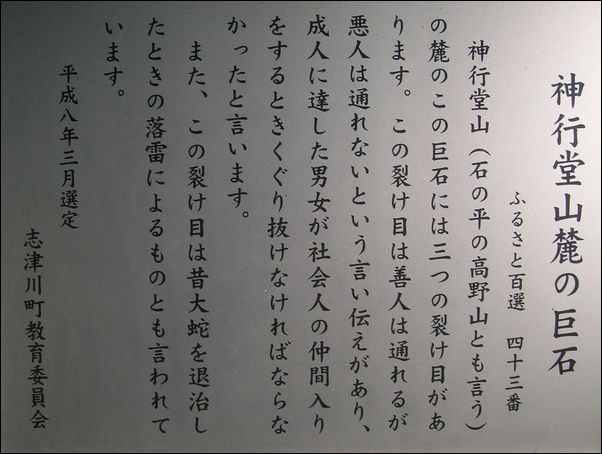 神行堂山麓の巨石
ふるさと百選　四十三番
神行堂山（石の平の高野山とも言う）
の麓のこの巨石には三つの裂け目があ
ります。この裂け目は善人は通れるが
悪人は通れないという言い伝えがあり、
成人に達した男女が社会人の仲間入り
をするときくぐり抜けなければならな
かったと言います。
また、この裂け目は昔大蛇を退治し
たときの落雷によるものとも言われて
います。
平成八年三月選定
志津川町教育委員会